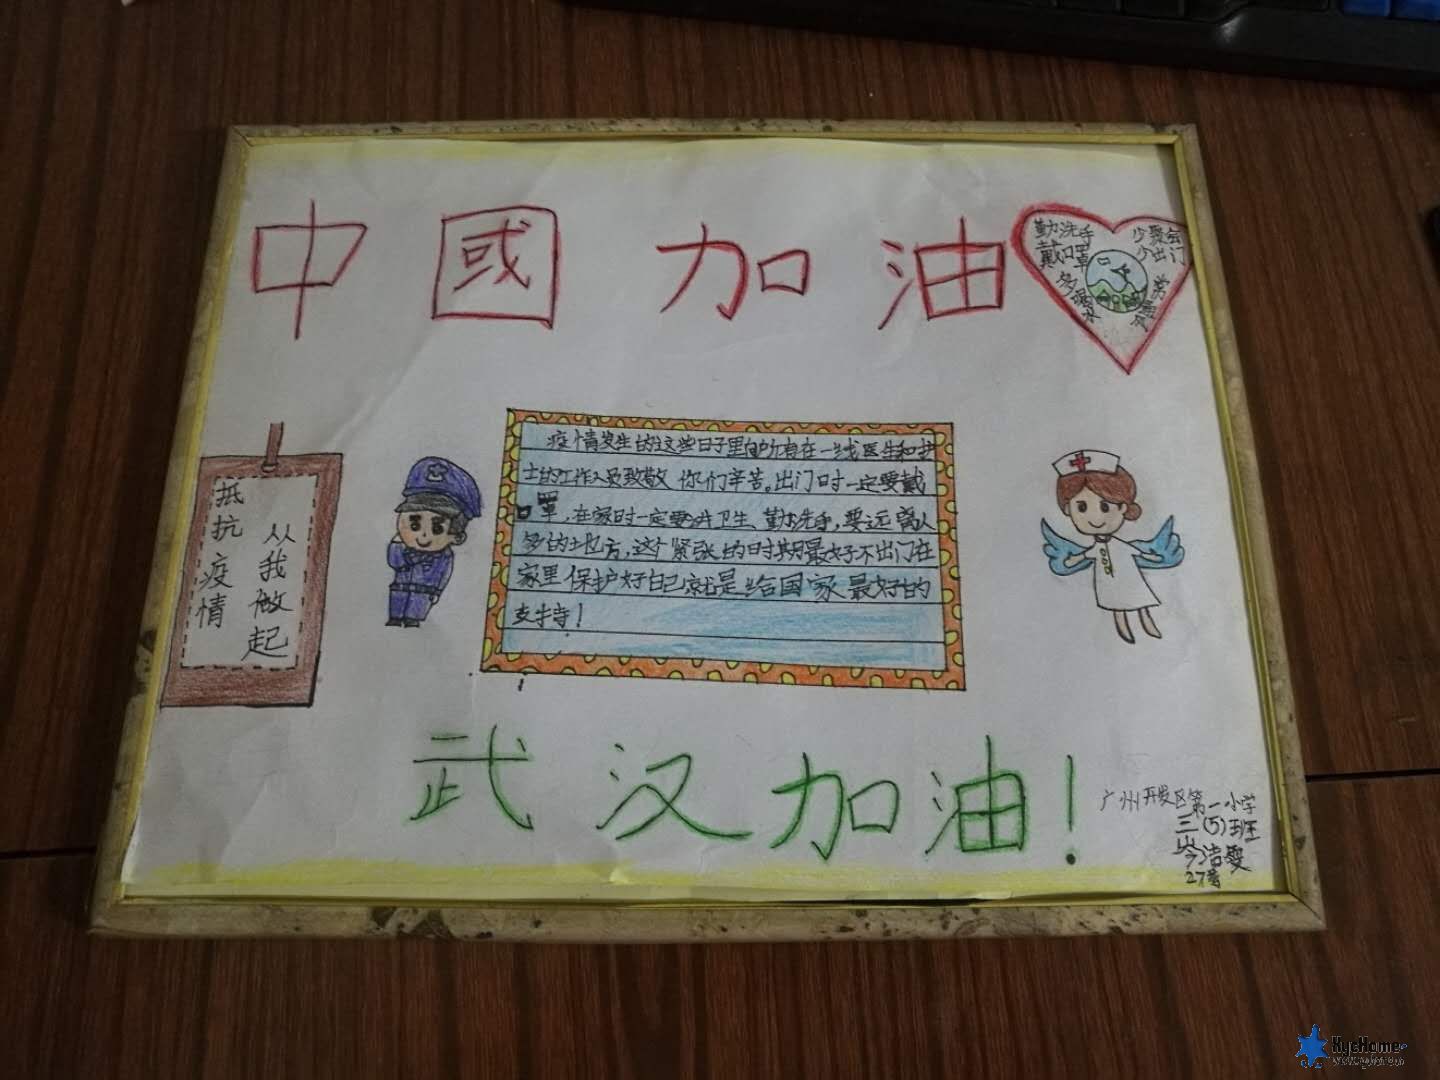 中國加油
勤洗手
戴口罩
少聚会
少出门
多喝水
抵抗疫情
从我做起
疫情发生的这些日子里向所有在一线医生和护
士的工作人员致敬 你们辛苦。出门时一定要戴
口罩,在家时一定要讲卫生、勤洗手,要远离人
多的地方,这个紧张的时期最好不出门在
家里保护好自己就是给国家最好的
支持!
武汉加油!
广州开发区第一小学
三(5)班
岑洁雯
27号
HycHome